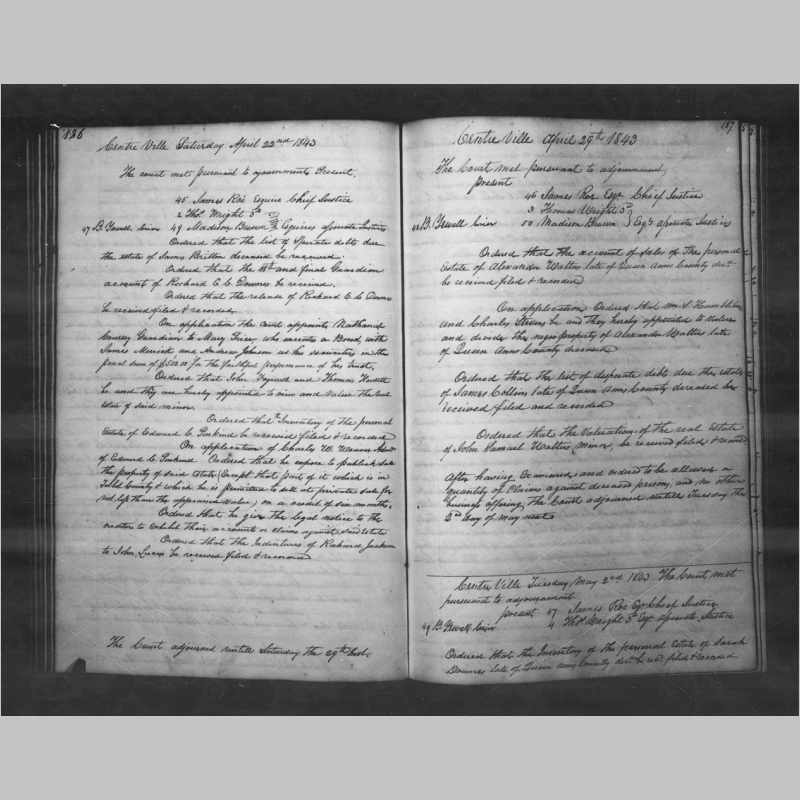 186
Centre Ville Saturday April 22nd 1843
The court met pursuant to agournment Present,
45 James Roe Esquire Chief Justice
2 Thos Wright 3rd
47 B. Yewell crier 49 Madison Brown Esquires associate Justices
Ordered that the list of Sperate debts due
the estate of James Britton deceased be received
Ordered that the and final Guardian
account of Richard C. C. Downes be received.
Ordered that the release of Richard C. C. Downes
be received filed & recorded
On application the court appoints Nathaniel
Guardian to Mary Grice, who executes a Bond, with
James Merrick and Andrew Johnson as his securities in the
penal sum of for the faithful performance of his trust,
Ordered that John and Thomas Hewitt
be and they are hereby appointed to view and value the real
estate of said minor.
Ordered that Inventory of the personal
Estate of Edward C. be received filed & recorded
On application of Charles W.
of Edward C. Ordered that he expose to publick sale
the property of said estate (except that part of it which is in
Talb County & which he is permitted to sell at private sale for
not less than the appraised value) on a credit of six months,
Ordered that he give the legal notice to the
creditors to exhibit their accounts or claims against said estate
Ordered that the Indenture of Richard Jackson
to John Lucas be received filed & recorded
The Court adjourned untill Saturday the 29th Inst.
187
Centre Ville April 29th 1843
The Court met pursuant to adjournment
present
46 James Roe Esqr Chief Justice
3 Thomas Wright 3rd
48 B. Yewell crier 50 Madison Brown Esqrs associate Justices
Ordered that the account of sales of the personal
Estate of Alexander Walters late of Queen Anns County decd
be received filed & recorded
On application Ordered that Wm S.
and Charles Stevens be and they hereby appointed to value
and divide the negro property of Alexander Walters late
of Queen Anns County deceased
Ordered that the list of desperate debts due the estate
of James Collins late of Queen Anns County deceased be
received filed and recorded
Ordered that the valuation of the real estate
of John Samuel Walters, minor, be received filed & recorded
After having examined and ordered to be allowed a
quantity of Claims against deceased persons, and no other
business offering, the Court adjourned untill Tuesday the
2nd day of May next
Centre Ville Tuesday May 2nd 1843 The Court met
pursuant to adjournment
present 47 James Roe Esqr Chief Justice
49 B. Yewell crier 4 Thos Wright 3rd Esqr associate Justice
Ordered that the Inventory of the personal estate of Sarah
Downes late of Queen Anns County decd be recd filed & recorded